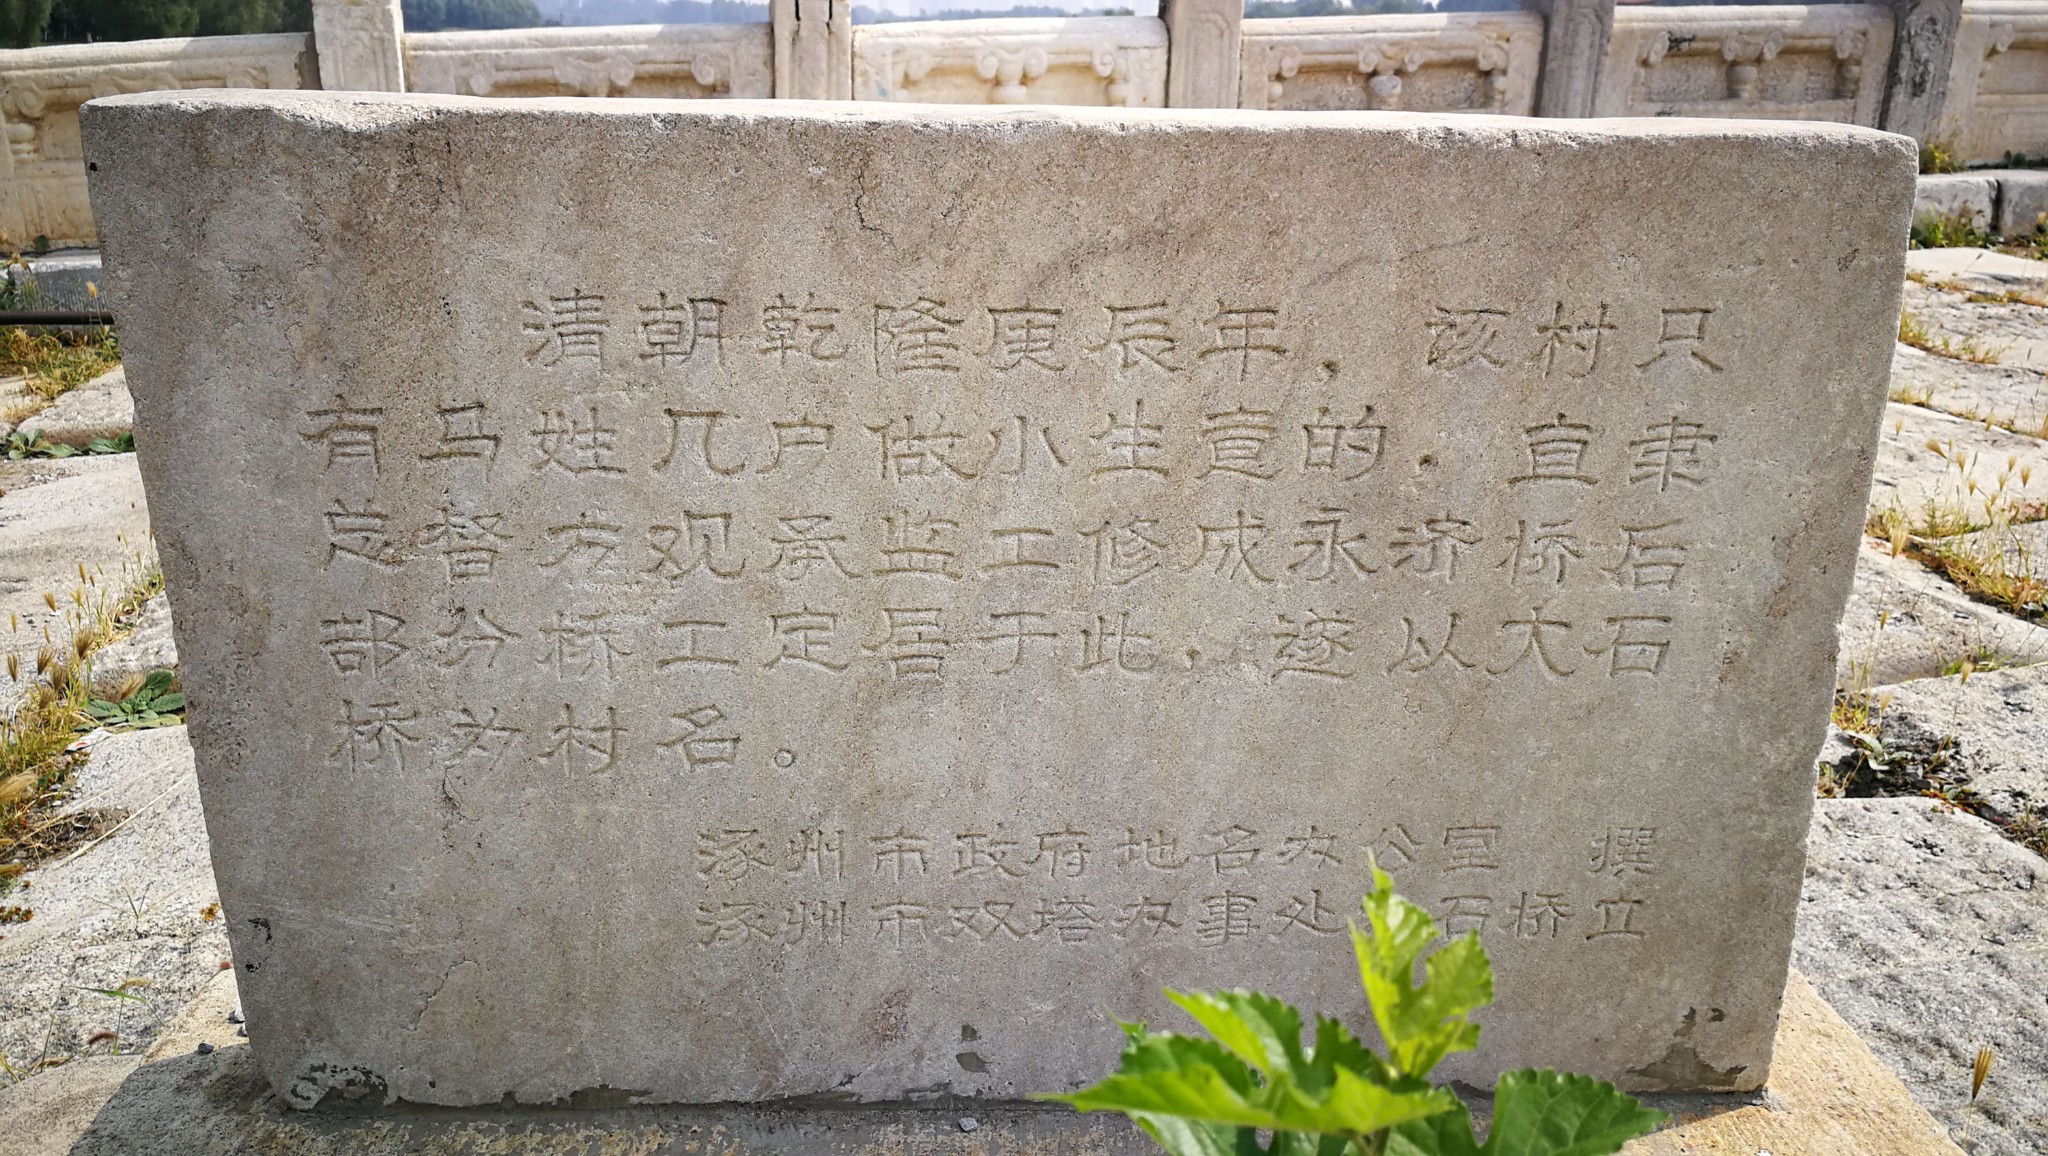 清朝乾隆庚辰年，该村只
有马姓几户做小生意的，直隶
总督方观承监工修成永济桥后
部分桥工定居于此，遂以大石
桥为村名。
涿州市政府地名办公室 撰
涿州市双塔办事处 石桥立